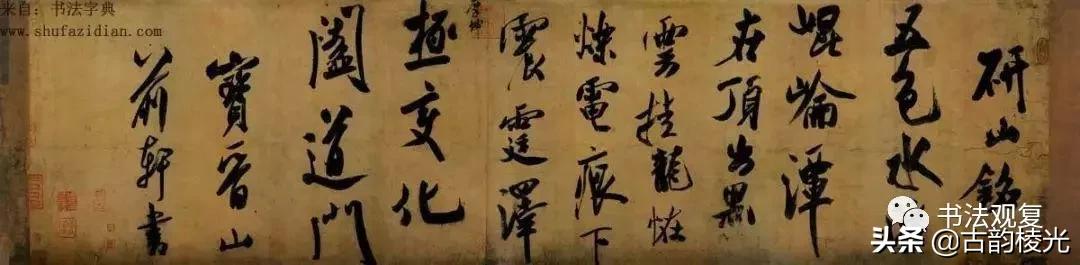 来自：书法字典
www.shufazidian.com
研山銘
五色水
崐崘潭
在頂出黑
雲挂龍怪
爍電痕下
震霆澤
極變化
闔道門
寶晉山
前軒書
书法观复
头条@古韵棱光